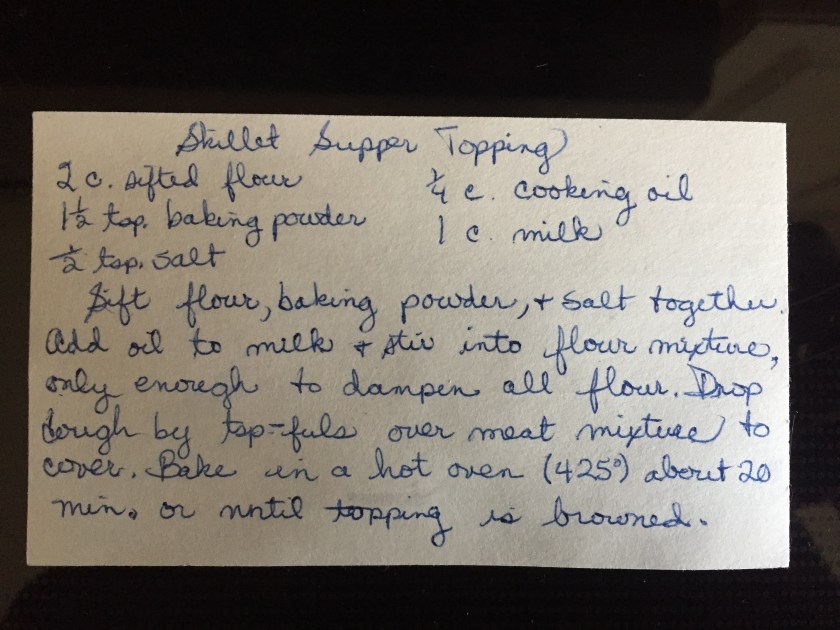 Skillet Supper Topping
2 c. sifted flour ¼ c. cooking oil
1½ tsp. baking powder 1 c. milk
½ tsp. salt
Sift flour, baking powder, + salt together.
Add oil to milk + stir into flour mixture,
only enough to dampen all flour. Drop
dough by tsp-fuls over meat mixture to
cover. Bake in a hot oven (425°) about 20
min. or until topping is browned.